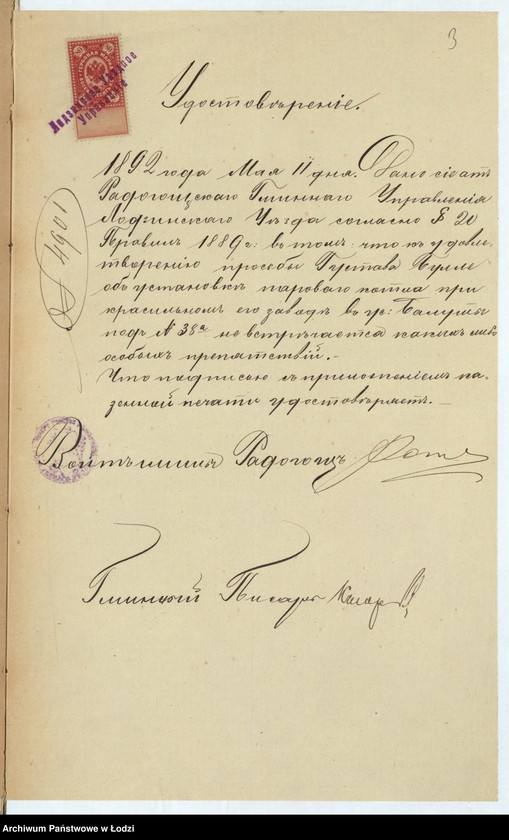 3
Лодзинское Уѣздное
Управленіе
Удостовѣреніе.
1892 года Мая 11 дня. Данъ сіе отъ
Радогощскаго Гминнаго Управленія
Лодзинскаго Уѣзда согласно § 20
правилъ 1889 г: въ томъ: что къ удовле-
творенію просьбы Густава
объ установкѣ пароваго котла при
красильномъ его заводѣ въ ур: Балуты
подъ № 38а не встрѣчается какихъ либо
особыхъ препятствій. —
Что подписью съ приложеніемъ ка-
зенной печати удостовѣряетъ. —
№ 4901
Войтъ гмины Радогощъ
Гминный Писарь
Archiwum Państwowe w Łodzi